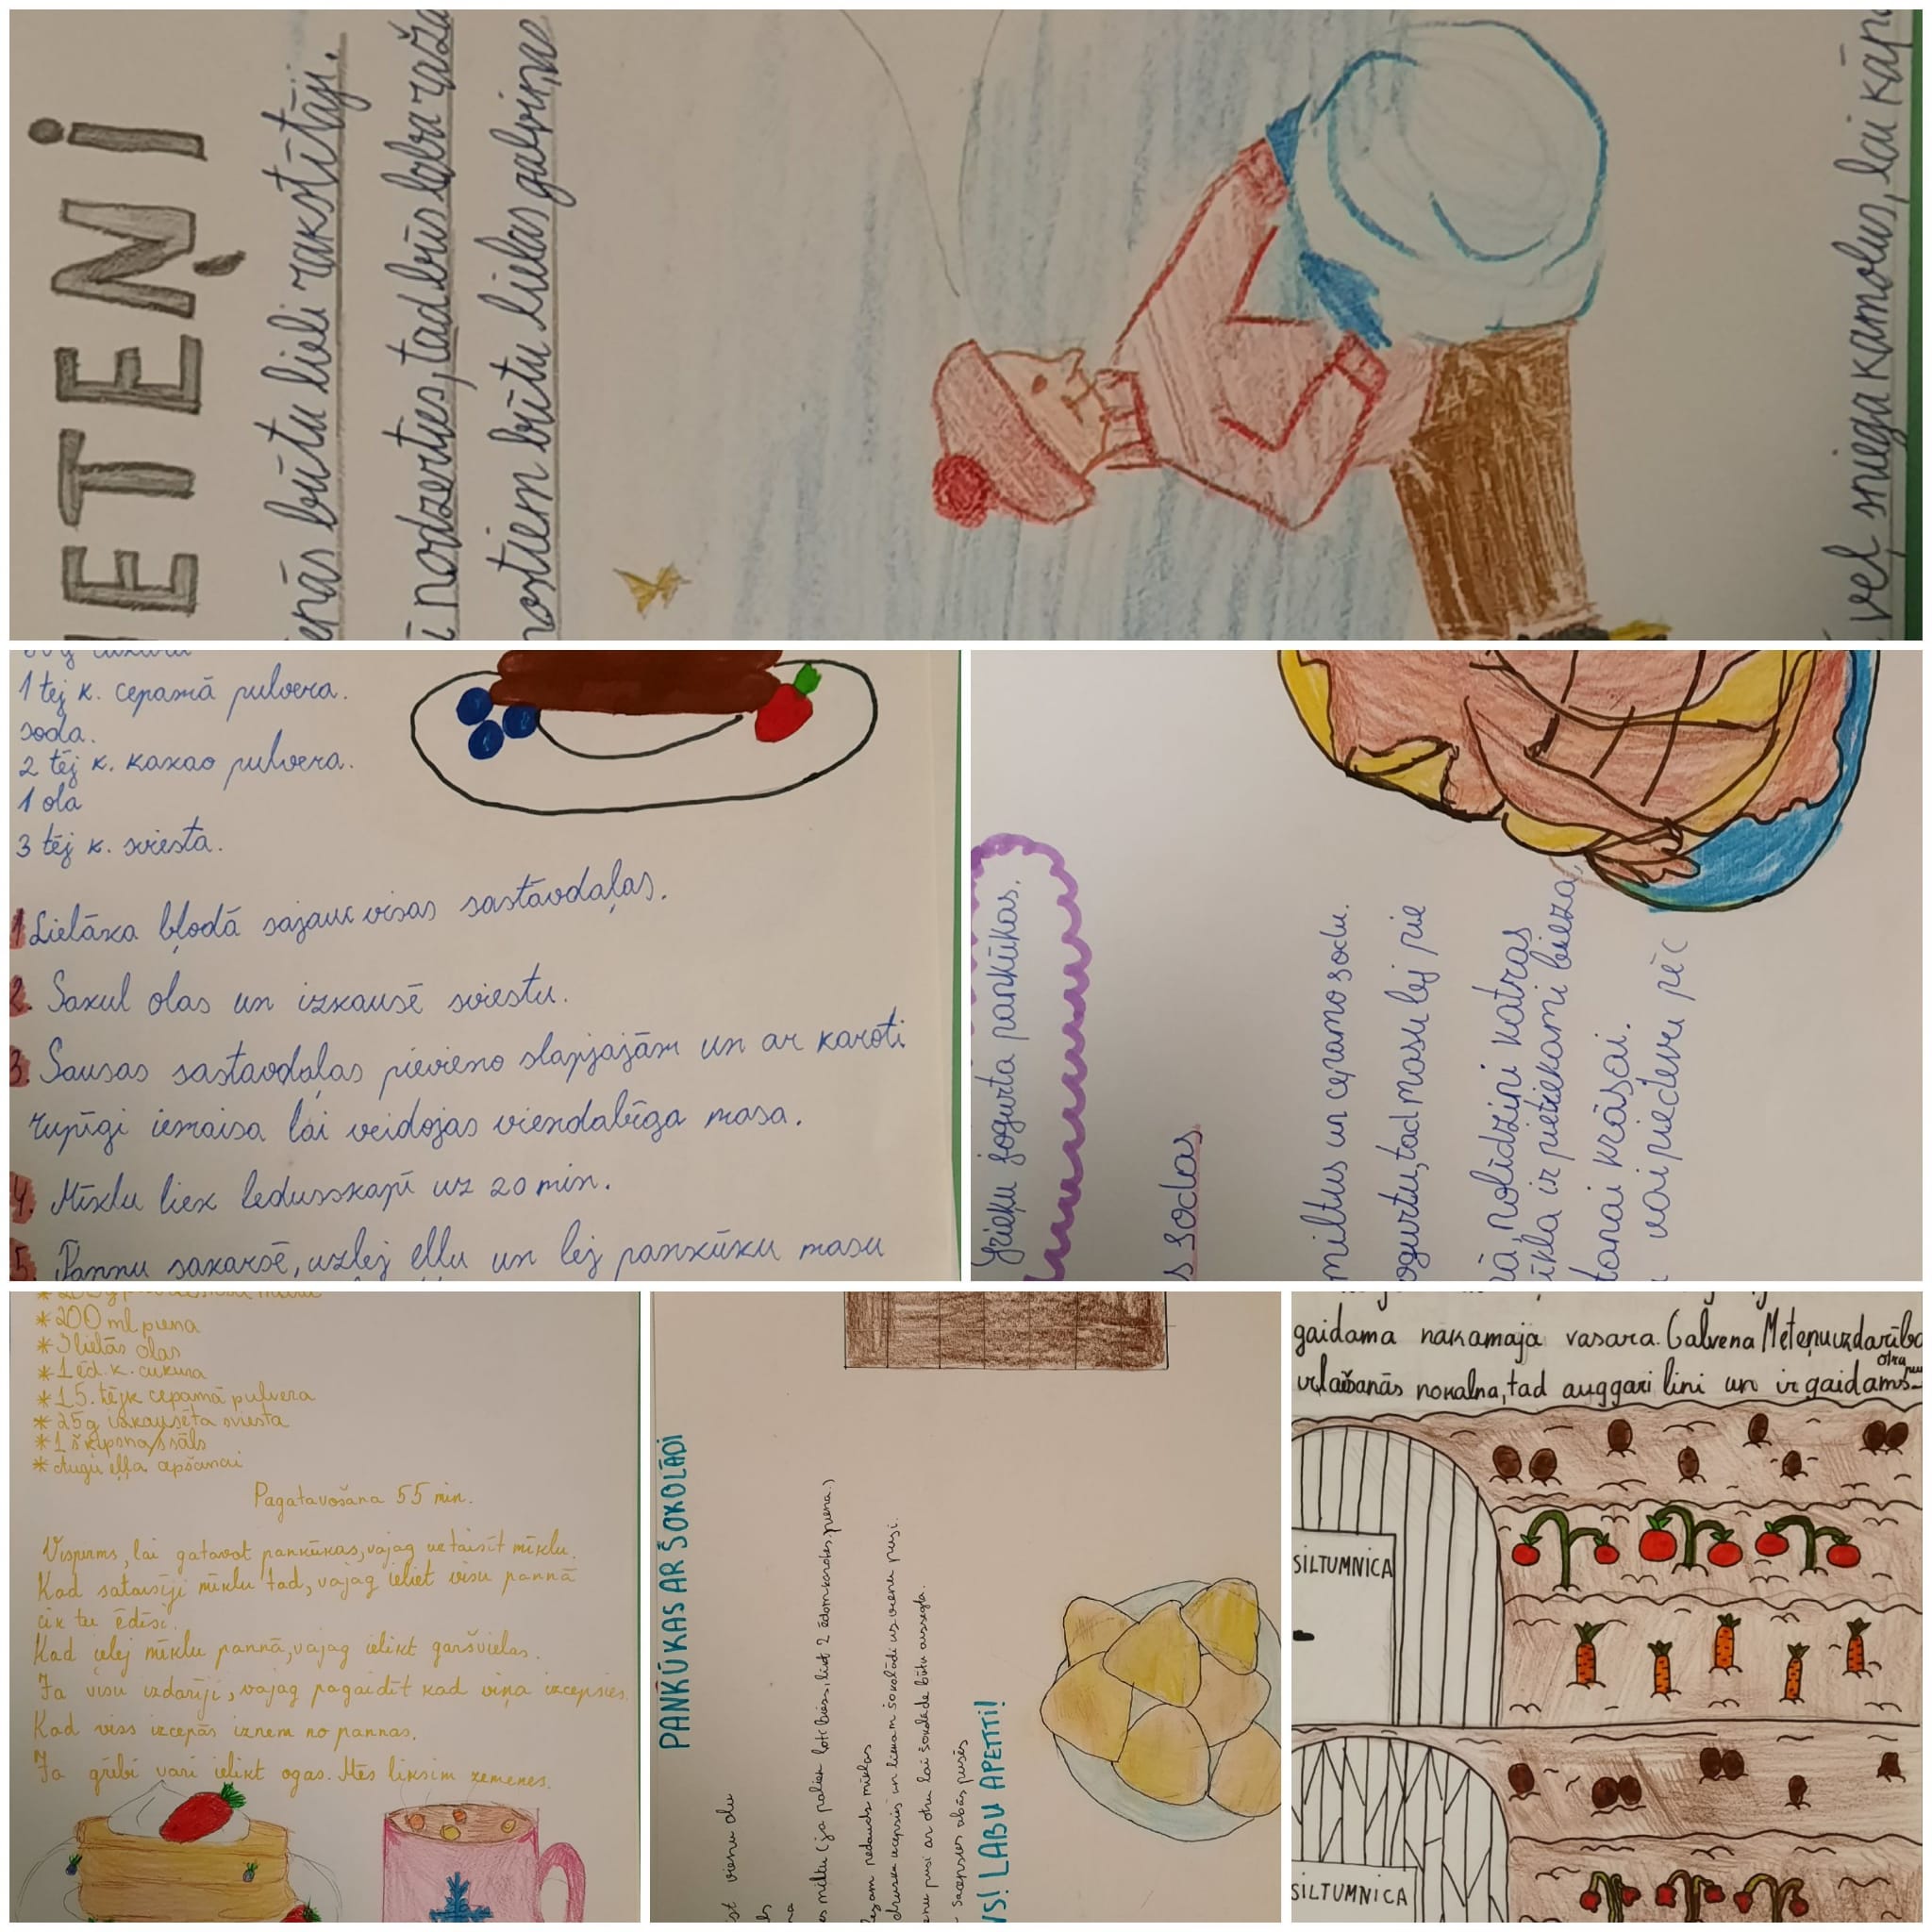 METEŅI
būtu lieli rakstītāji.
nodzerties, tad būs laba raža
būtu lielas galviņas
vēl sniega kamolus, lai kāpo
1 tej k. cepamā pulvera.
soda.
2 tēj k. kakao pulvera.
1 ola
3 tēj k. sviesta.
1. Lielāka bļodā sajauc visas sastāvdaļas.
2. Sakul olas un izkausē sviestu.
3. Sausas sastavdaļas pievieno slapjajām un ar karoti
rūpīgi iemaisa lai veidojas viendabīga masa.
4. Mīklu liek ledusskapī uz 20 min.
5. Pannu sakarsē, uzlej eļļu un lej pankūku masu
Grieķu jogurta pankūkas.
sodas
miltus un cepamo sodu.
ogurtu, tad masu lej pie
nolīdzini katras
īkla ir pietiekami bieza,
krāsai.
vai piedevu pēc
* 200 ml piena
* 3 lielās olas
* 1 ēd. k. cukura
* 1.5. tējk cepamā pulvera
* 25g izkausēta sviesta
* 1 šķipsna sāls
* Augu eļļa cepšanai
Pagatavošana 55 min.
Vispirms, lai gatavot pankūkas, vajag uztaisīt mīklu.
Kad sataisīji mīklu tad, vajag ieliet visu pannā
cik tu ēdīsi.
Kad ielej mīklu pannā, vajag ielikt garšvielas.
Ja visu izdarīji, vajag pagaidīt kad viņa izcepsies.
Kad viss izcepās izņem no pannas.
Ja gribi vari ielikt ogas. Mēs liksim zemenes.
PANKŪKAS AR ŠOKOLĀDI
vienu olu
miltu (ja paliek ļoti biezs, liet 2 ēdamkarotes piena.)
nedaudz mīklas
un liekam šokolādi uz vienu pusi.
pusi ar otru lai šokolāde būtu aizsegta.
abās pusēs
LABU APETTI!
gaidama nākamajā vasara. Galvena Meteņu izdarība
vizlaišanās no kalna, tad auggari lini un ir gaidams
SILTUMNICA
SILTUMNICA